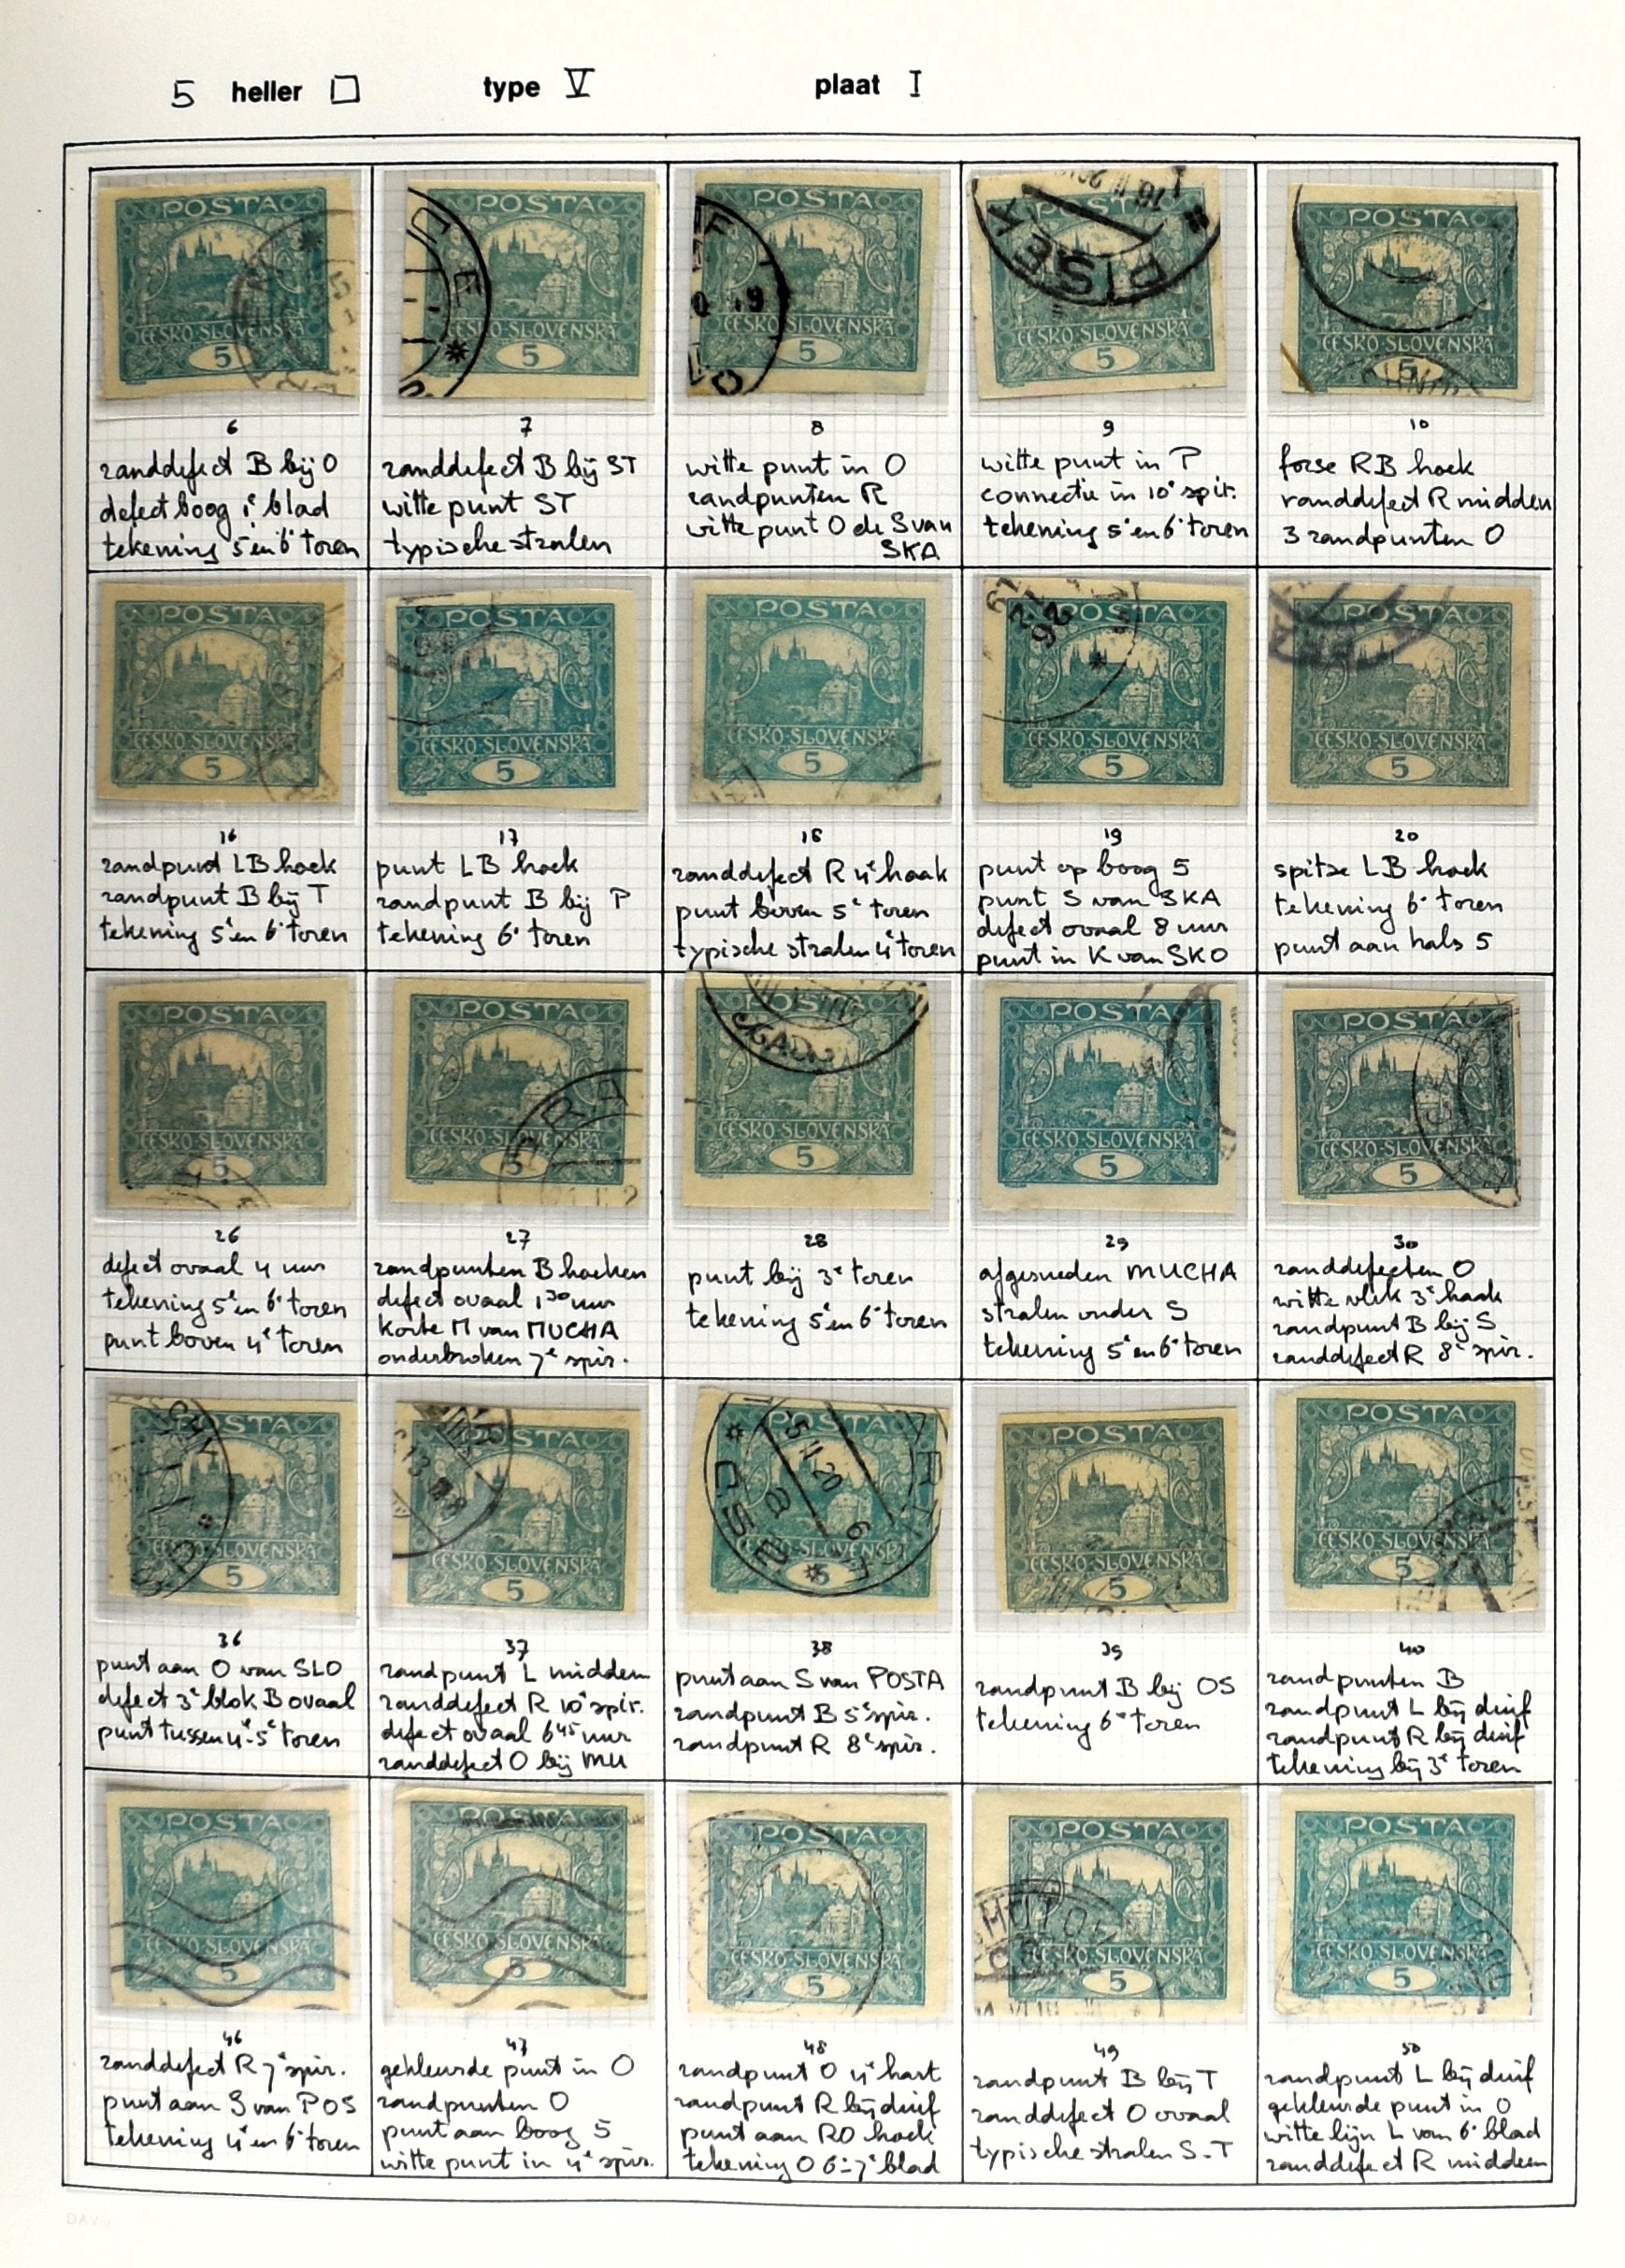 5 heller type V plaat I
POSTA
ČESKO-SLOVENSKÁ
5
6
randdefect B bij O
defect boog 1e blad
tekening 5e en 6e toren
POSTA
ČESKO-SLOVENSKÁ
5
7
randdefect B bij ST
witte punt ST
typische stralen
POSTA
ČESKO-SLOVENSKÁ
5
8
witte punt in O
randpunten R
witte punt O de S van
SKA
POSTA
PISEK
ČESKO-SLOVENSKÁ
5
9
witte punt in P
connectie in 10e spir.
tekening 5e en 6e toren
POSTA
ČESKO-SLOVENSKÁ
5
10
forse RB hoek
randdefect R midden
3 randpunten O
POSTA
ČESKO-SLOVENSKÁ
5
16
randpunt LB hoek
randpunt B bij T
tekening 5e en 6e toren
POSTA
ČESKO-SLOVENSKÁ
5
17
punt LB hoek
randpunt B bij P
tekening 6e toren
POSTA
ČESKO-SLOVENSKÁ
5
18
randdefect R 4e haak
punt boven 5e toren
typische stralen 4e toren
POSTA
ČESKO-SLOVENSKÁ
5
19
punt op boog 5
punt S van SKA
defect ovaal 8 uur
punt in K van SKO
POSTA
ČESKO-SLOVENSKÁ
5
20
spitse LB hoek
tekening 6e toren
punt aan hals 5
POSTA
ČESKO-SLOVENSKÁ
5
26
defect ovaal 4 uur
tekening 5e en 6e toren
punt boven 4e toren
POSTA
ČESKO-SLOVENSKÁ
5
27
randpunten B hoeken
defect ovaal 1 30 uur
korte M van MUCHA
onderbroken 7e spir.
POSTA
ČESKO-SLOVENSKÁ
5
28
punt bij 3e toren
tekening 5e en 6e toren
POSTA
ČESKO-SLOVENSKÁ
5
29
afgesneden MUCHA
stralen onder S
tekening 5e en 6e toren
POSTA
ČESKO-SLOVENSKÁ
5
30
randdefecten O
witte vlek 3e haak
randpunt B bij S
randdefect R 8e spir.
POSTA
ČESKO-SLOVENSKÁ
5
36
punt aan O van SLO
defect 3e blok B ovaal
punt tussen 4e-5e toren
POSTA
ČESKO-SLOVENSKÁ
5
37
randpunt L midden
randdefect R 10e spir.
defect ovaal 6 45 uur
randdefect O bij MU
POSTA
5 II 20 6
ČESKO-SLOVENSKÁ
5
38
punt aan S van POSTA
randpunt B 5e spir.
randpunt R 8e spir.
POSTA
ČESKO-SLOVENSKÁ
5
39
randpunt B bij OS
tekening 6e toren
POSTA
ČESKO-SLOVENSKÁ
5
40
randpunten B
randpunt L bij duif
randpunt R bij duif
tekening bij 3e toren
POSTA
ČESKO-SLOVENSKÁ
5
46
randdefect R 7e spir.
punt aan S van POS
tekening 4e en 6e toren
POSTA
ČESKO-SLOVENSKÁ
5
47
gekleurde punt in O
randpunten O
punt aan boog 5
witte punt in 4e spir.
POSTA
ČESKO-SLOVENSKÁ
5
48
randpunt O 4e hart
randpunt R bij duif
punt aan RO hoek
tekening O 6e-7e blad
POSTA
ČESKO-SLOVENSKÁ
5
49
randpunt B bij T
randdefect O ovaal
typische stralen S-T
POSTA
ČESKO-SLOVENSKÁ
5
50
randpunt L bij duif
gekleurde punt in O
witte lijn L van 6e blad
randdefect R midden
DAVO